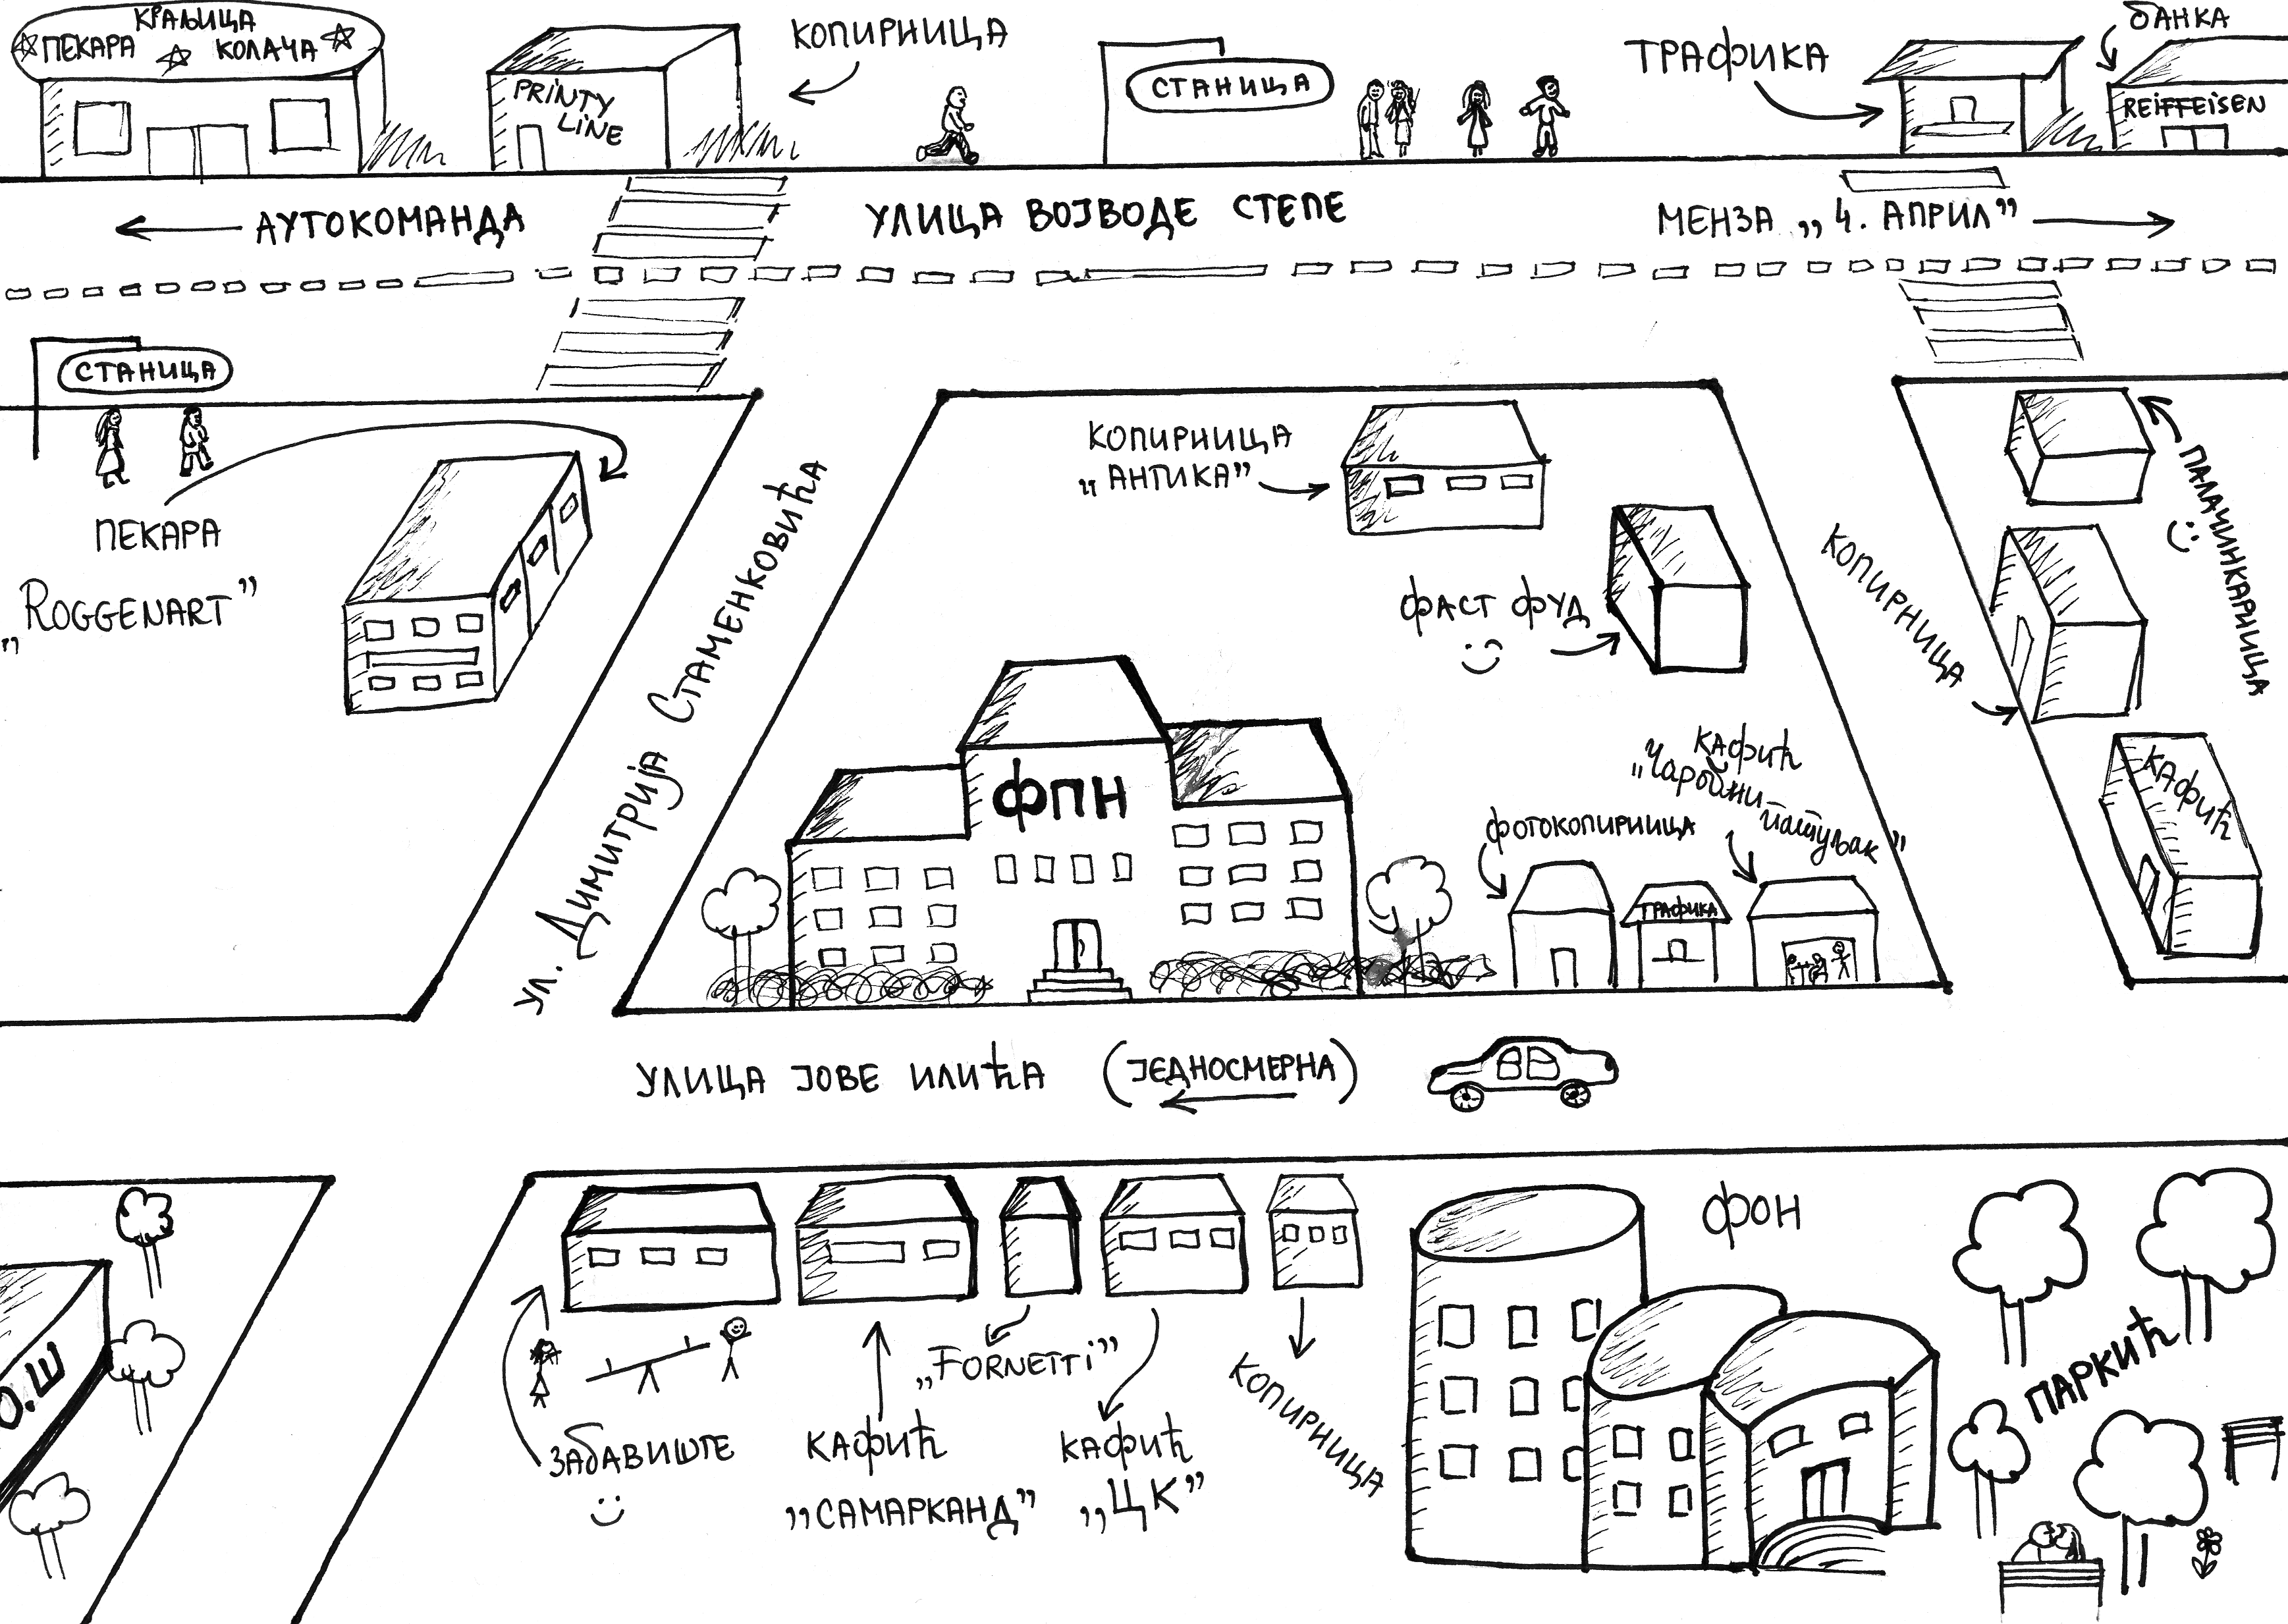 КРАЉИЦА
ПЕКАРА КОЛАЧА
PRINTY
LINE
КОПИРНИЦА
СТАНИЦА
ТРАФИКА
БАНКА
REIFFEISEN
АУТОКОМАНДА
УЛИЦА ВОЈВОДЕ СТЕПЕ
МЕНЗА „4. АПРИЛ”
СТАНИЦА
ПЕКАРА
„ROGGENART”
Ул. Димитрија Стаменковића
КОПИРНИЦА
„АНТИКА”
ФАСТ ФУД
ПАЛАЧИНКАРНИЦА
КОПИРНИЦА
КАФИЋ
ФПН
ФОТОКОПИРНИЦА
ТРАФИКА
КАФИЋ
„Чаробни
пашуљак”
УЛИЦА ЈОВЕ ИЛИЋА (ЈЕДНОСМЕРНА)
О.Ш
ЗАБАВИШТЕ
КАФИЋ
„САМАРКАНД”
„FORNETTI”
КАФИЋ
„ЦК”
КОПИРНИЦА
ФОН
ПАРКИЋ